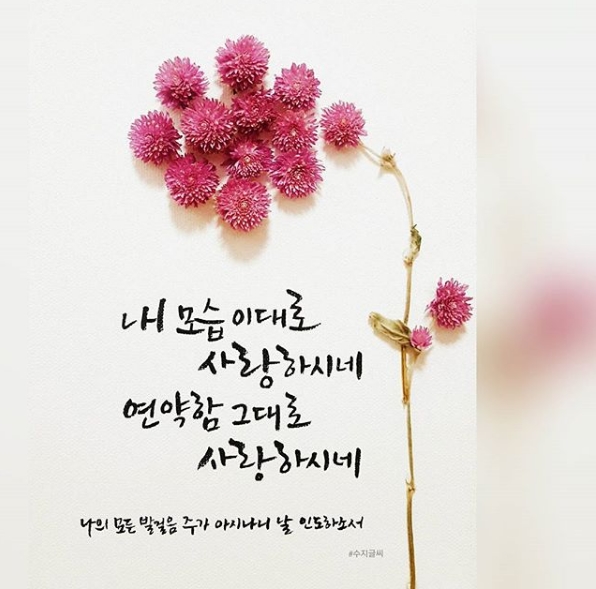 내 모습 이대로
사랑하시네
연약함 그대로
사랑하시네
나의 모든 발걸음 주가 아시나니 날 인도하소서
#수지글씨